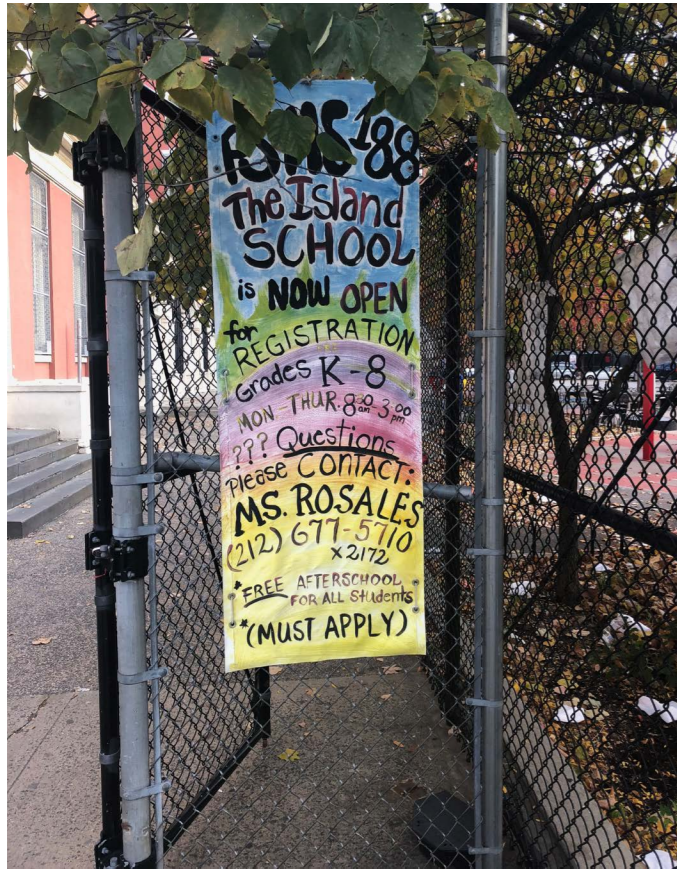 PSMS 188
The Island
SCHOOL
is NOW OPEN
for
REGISTRATION
Grades K-8
MON-THUR. 8:30 am-3:00 pm
??? Questions
Please CONTACT:
MS. ROSALES
(212) 677-5710
x2172
*FREE AFTERSCHOOL
FOR ALL Students
*(MUST APPLY)